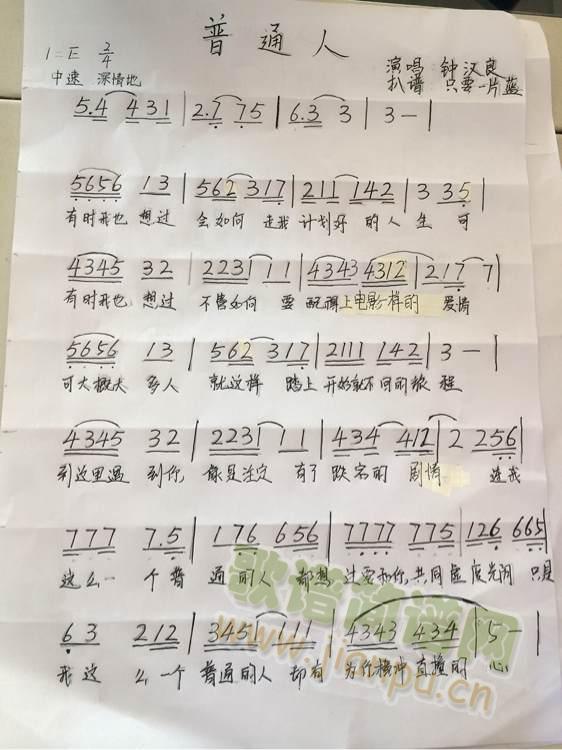 普通人
1=E 2/4
演唱:钟汉良
中速 深情地
扒谱 只要一片蓝
5.4 431 | 2.7 75 | 6.3 3 | 3 — |
5656 13 | 562 317 | 211 142 | 3 35 |
有时我也 想过 会如何 走我 计划好 的人 生 可
4345 32 | 2231 11 | 4343 4312 | 217 7 |
有时我也 想过 不管如何 要 配得上电影一样的 爱情
5656 13 | 562 317 | 2111 142 | 3 — |
可大概大 多人 就这样 踏上 开始就不同的旅 程
4345 32 | 2231 11 | 434 412 | 2 256 |
到这里遇 到你 像是注定 有了 跌宕的 剧情
777 7.5 | 176 656 | 7777 775 | 126 665 |
这么一 个普 通的人 都想 过要和你共同虚度光阴 只是
6 3 212 | 345 111 | 4343 434 | 5 — |
我这 么一个 普通的人 却有 为你横冲直撞的 心
歌谱简谱网
www.jianpu.cn